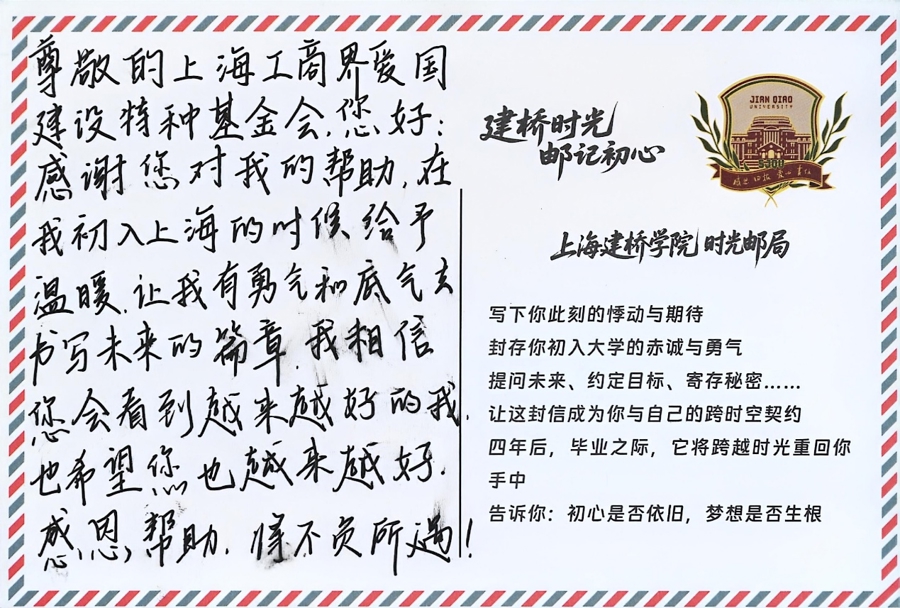 尊敬的上海工商界爱国
建设特种基金会,您好:
感谢您对我的帮助,在
我初入上海的时候给予
温暖,让我有勇气和底气去
书写未来的篇章,我相信
您会看到越来越好的我,
也希望您也越来越好.
感恩帮助,将不负所遇!
建桥时光
邮记初心
JIAN QIAO
UNIVERSITY
SJQU
感恩 回报 爱心 责任
上海建桥学院 时光邮局
写下你此刻的悸动与期待
封存你初入大学的赤诚与勇气
提问未来、约定目标、寄存秘密……
让这封信成为你与自己的跨时空契约
四年后，毕业之际，它将跨越时光重回你
手中
告诉你：初心是否依旧，梦想是否生根